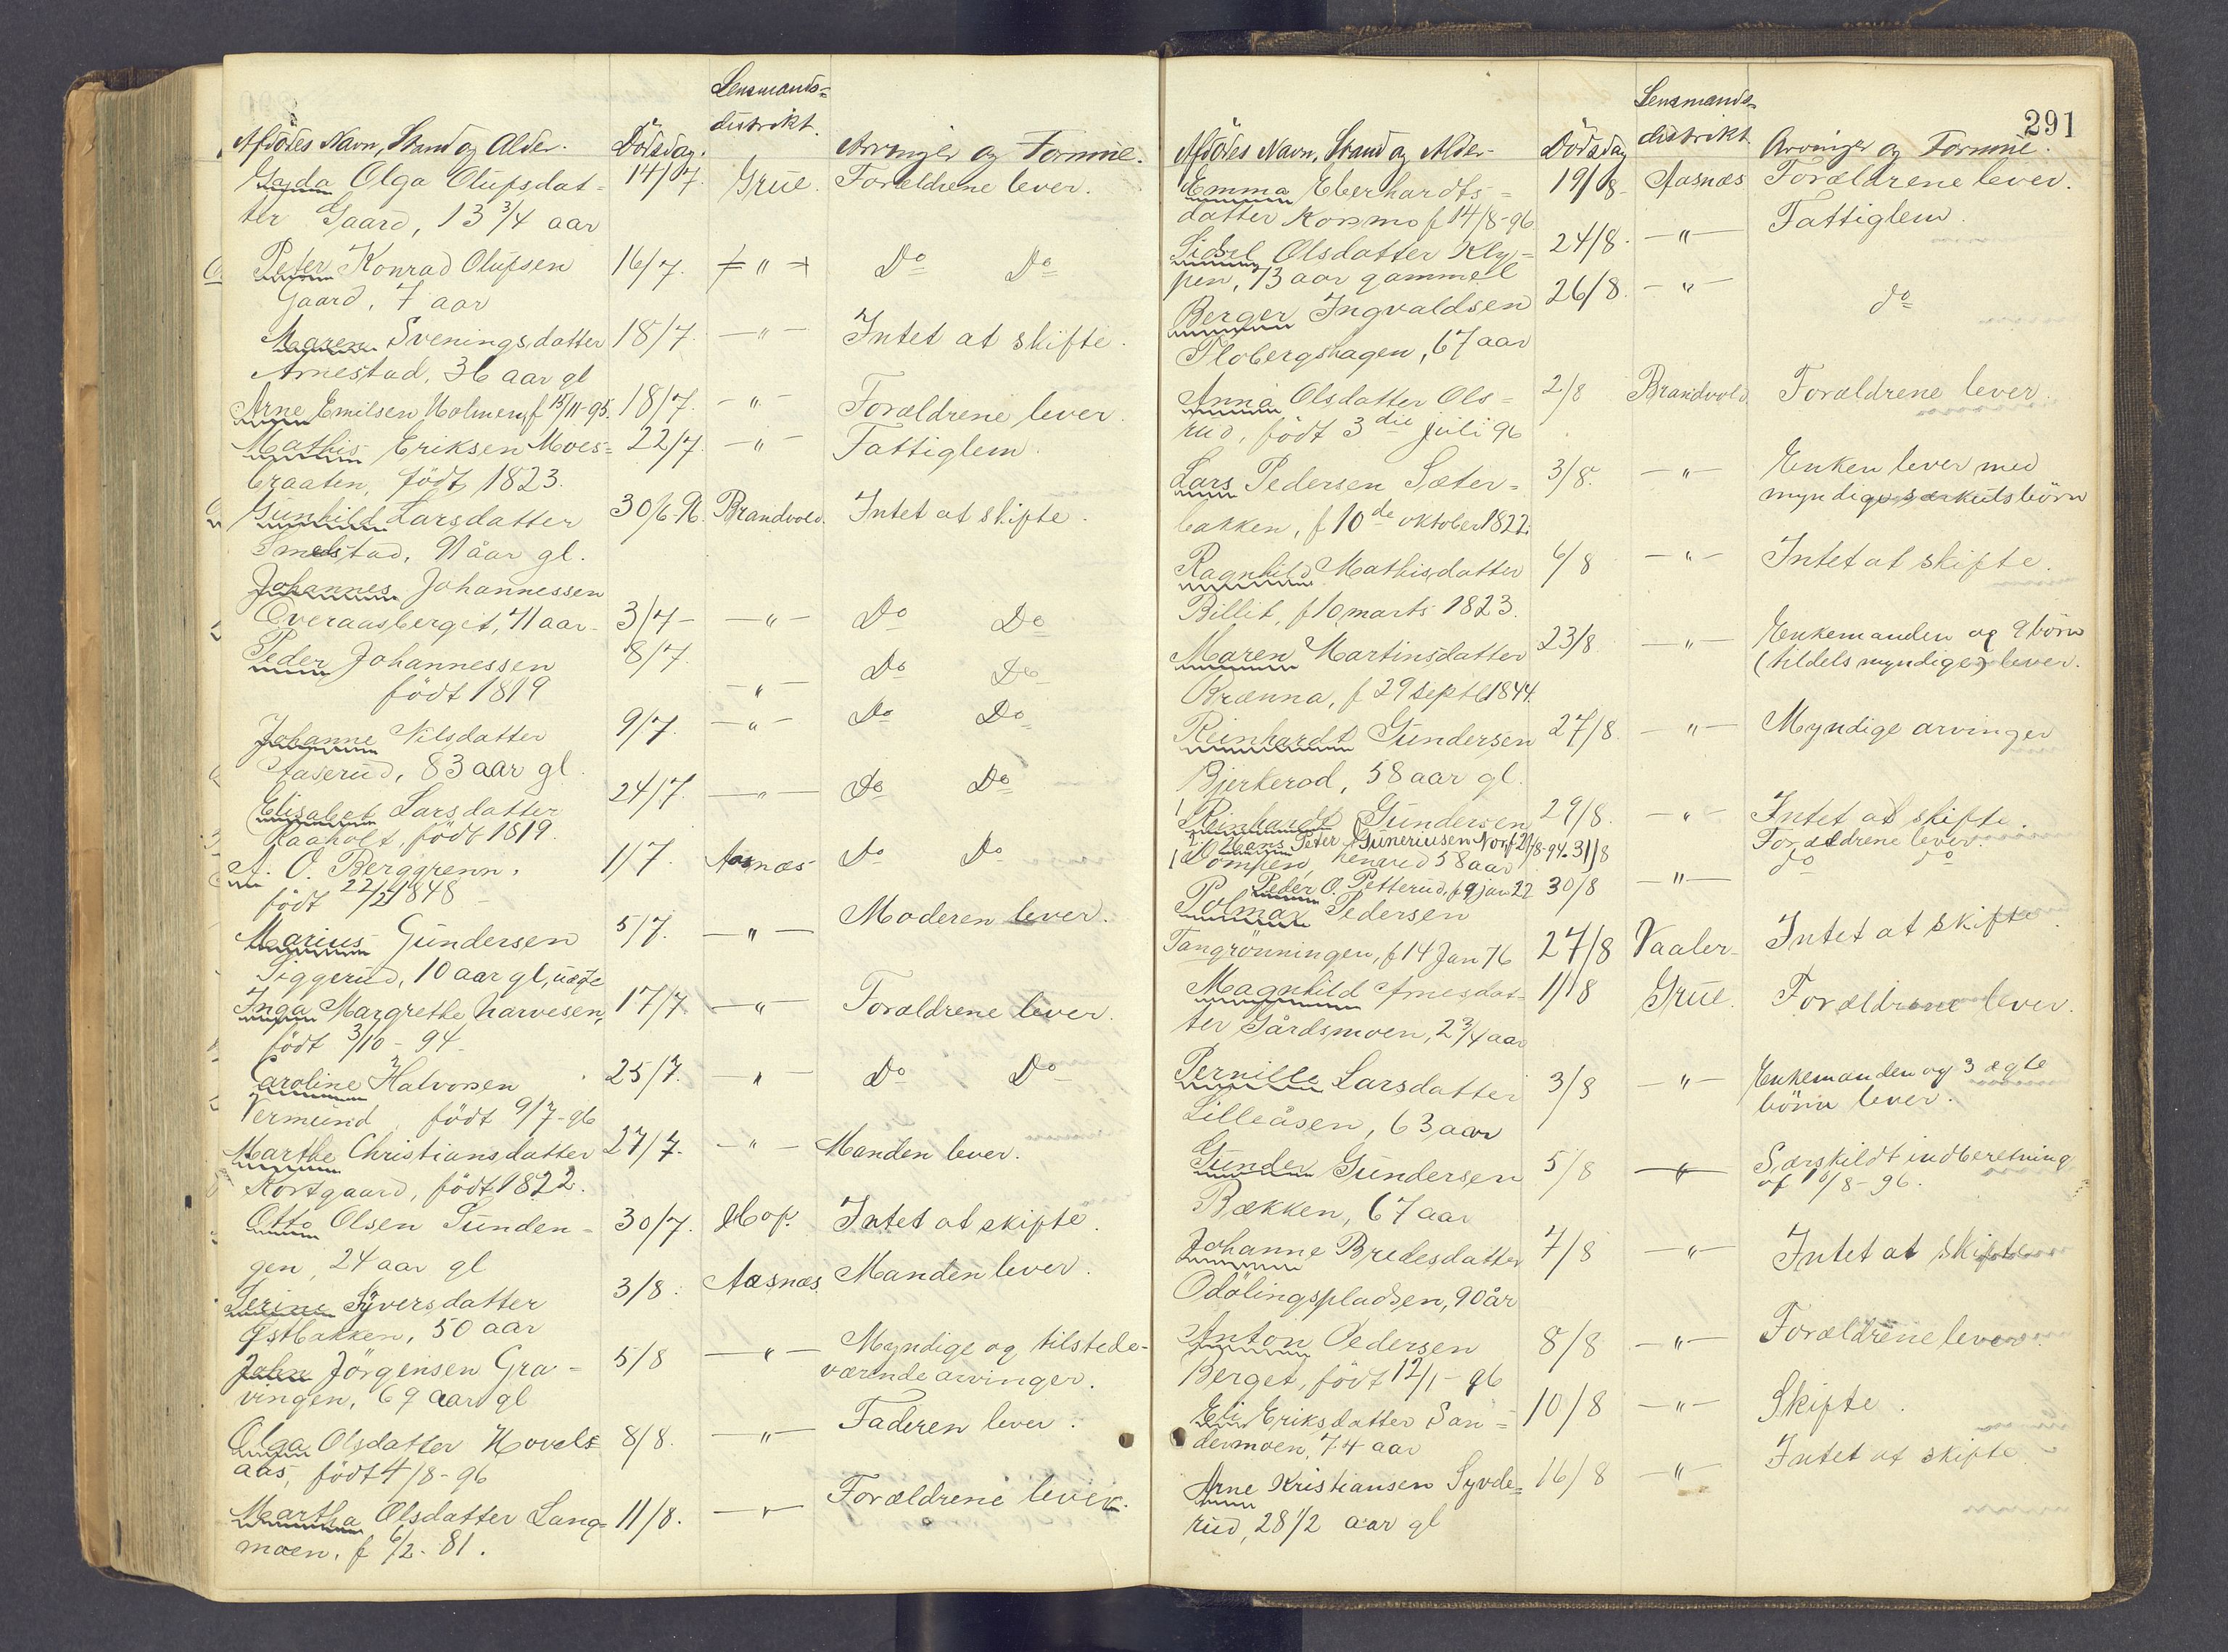 Lensmands=
Afdödes Navn, Stand og Alder. Dödsdag. distrikt. Arvinger og Formue.
Gyda Olga Olufsdat= 14/7 Grue. Forældrene lever.
ter Gaard, 13 3/4 aar
Peter Konrad Olufsen 16/7. " Do Do
Gaard, 7 aar
Maren Sveningsdatter 18/7. —"— Intet at skifte.
Arnestad, 36 aar gl
Arne Emilsen Holmen, f 15/11-95. 18/7. —"— Forældrene lever
Mathis Eriksen Moes= 22/7. —"— Fattiglem.
braaten, født 1823.
Gunhild Larsdatter 30/6-96. Brandvold. Intet at skifte.
Smedstad, 91 åar gl.
Johannes Johannessen
Overaasberget, 71 aar 3/7 —"— Do Do
Peder Johannessen 8/7. —"— Do Do
født 1819
Johanne Nilsdatter 9/7. —"— Do Do
Aaserud, 83 aar gl.
Elisabet Larsdatter 24/7. —"— Do Do
Raaholt, født 1819.
A. O. Berggrenn, 1/7. Aasnæs Do Do
født 22/2 1848
Marius Gundersen 5/7. —"— Moderen lever.
Siggerud, 10 aar gl, uægte
Inga Margrethe Narvesen, 17/7 —"— Forældrene lever.
født 3/10 - 94
Caroline Halvorsen 25/7. —"— Do Do
Vermund, født 9/7-96
Marthe Christiansdatter 27/7. —"— Manden lever.
Kortgaard, født 1822.
Otto Olsen Sunden= 30/7. Hof. Intet at skifte.
gen, 24 aar gl
Serine Syversdatter 3/8. Aasnæs. Manden lever.
Østbakken, 50 aar
John Jörgensen Gra= 5/8 —"— Myndige og tilstede-
vingen, 69 aar gl værende arvinger.
Olga Olsdatter Hovels= 8/8. —"— Faderen lever.
aas, født 4/8-96
Martha Olsdatter Lang= 11/8. —"— Forældrene lever.
moen, f 6/2-81.
291
Lensmands-
Afdödes Navn, Stand og Alder- Dödsdag distrikt Arvinger og Formue.
Emma Eberhardts= 19/8- Aasnæs Forældrene lever.
datter Kosmo f 14/8-96
Sidsel Olsdatter Kly= 24/8. —"— Fattiglem.
pen, 73 aar gammel
Berger Ingvaldsen 26/8. —"— do
Flobergshagen, 67 aar
Anna Olsdatter Ols= 2/8 Brandvold Forældrene lever.
rud, født 3die juli 96
Lars Pedersen Sæter= 3/8. —"— Enken lever med
bakken, f 10de oktober 1822. myndige særkuldsbörn
Ragnhild Mathisdatter 6/8 —"— Intet at skifte.
Billit, f 10 marts 1823.
Maren Martinsdatter 23/8. —"— Enkemanden og 9 börn
Brænna, f 29 septe 1844. (tildels myndige) lever.
Reinhardt Gundersen 27/8. —"— Myndige arvinger
Bjerkerod, 58 aar gl.
1 Reinhardt Gundersen 29/8. —"— Intet at skifte
2. Hans Peter Guneriusen Nor, f 21/8-94. 31/8 Forældrene lever.
1 Dompen, henved 58 aar do do
Peder O. Petterud, f 9 jan 22 30/8 —"—
Polmar Pedersen
Tangrönningen, f 14 Jan 76 27/8 Vaaler- Intet at skifte.
Magnhild Arnesdat= 1/8 Grue. Forældrene lever.
ter Gårdsmoen, 2 3/4 aar
Pernille Larsdatter 3/8 "— Enkemanden og 3 ægte
Lilleåsen, 63 aar börn lever.
Gunder Gundersen 5/8 —"— Særskildt indberetning
Bækken, 67 aar af 10/8-96.
Johanne Bredesdatter 7/8 —"— Intet at skifte
Odölingspladsen, 90 år
Anton Pedersen 8/8 —"— Forældrene lever.
Berget, født 12/1-96
Eli Eriksdatter San= 10/8 —"— Skifte.
dermoen, 74 aar
Arne Kristiansen Syvde= 16/8 —"— Intet at skifte.
rud, 28 1/2 aar gl